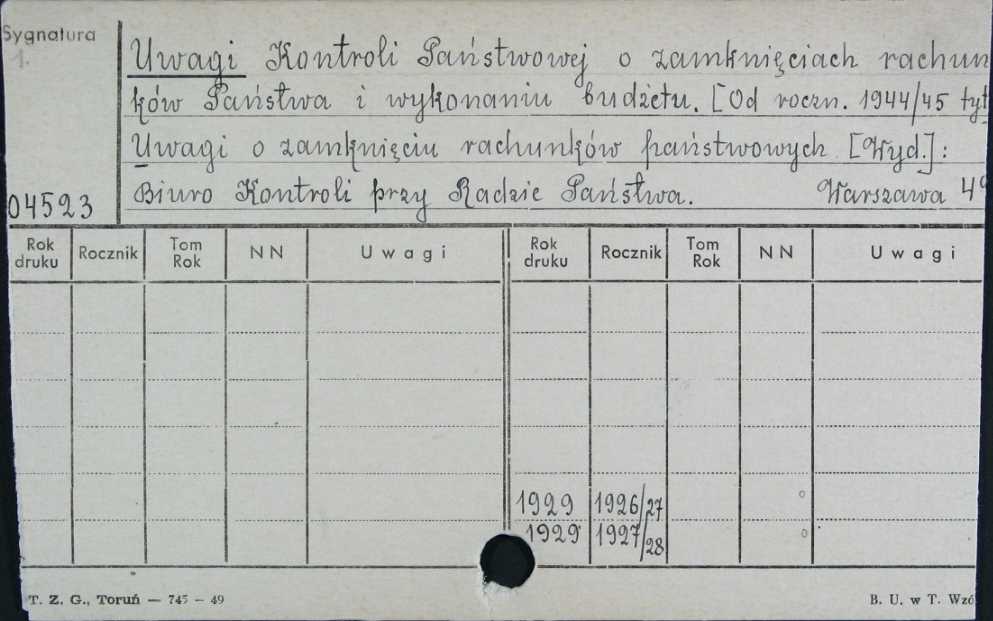 Sygnatura
1.
Uwagi Kontroli Państwowej o zamknięciach rachun
ków Państwa i wykonaniu budżetu. [Od roczn. 1944/45 tyt
Uwagi o zamknięciu rachunków państwowych [Wyd.]:
04523 Biuro Kontroli przy Radzie Państwa. Warszawa 49
Rok druku Rocznik Tom Rok N N Uwagi Rok druku Rocznik Tom Rok N N Uwagi
1929 1926/27
1929 1927/28
T. Z. G., Toruń — 745 — 49 B. U. w T. Wzó